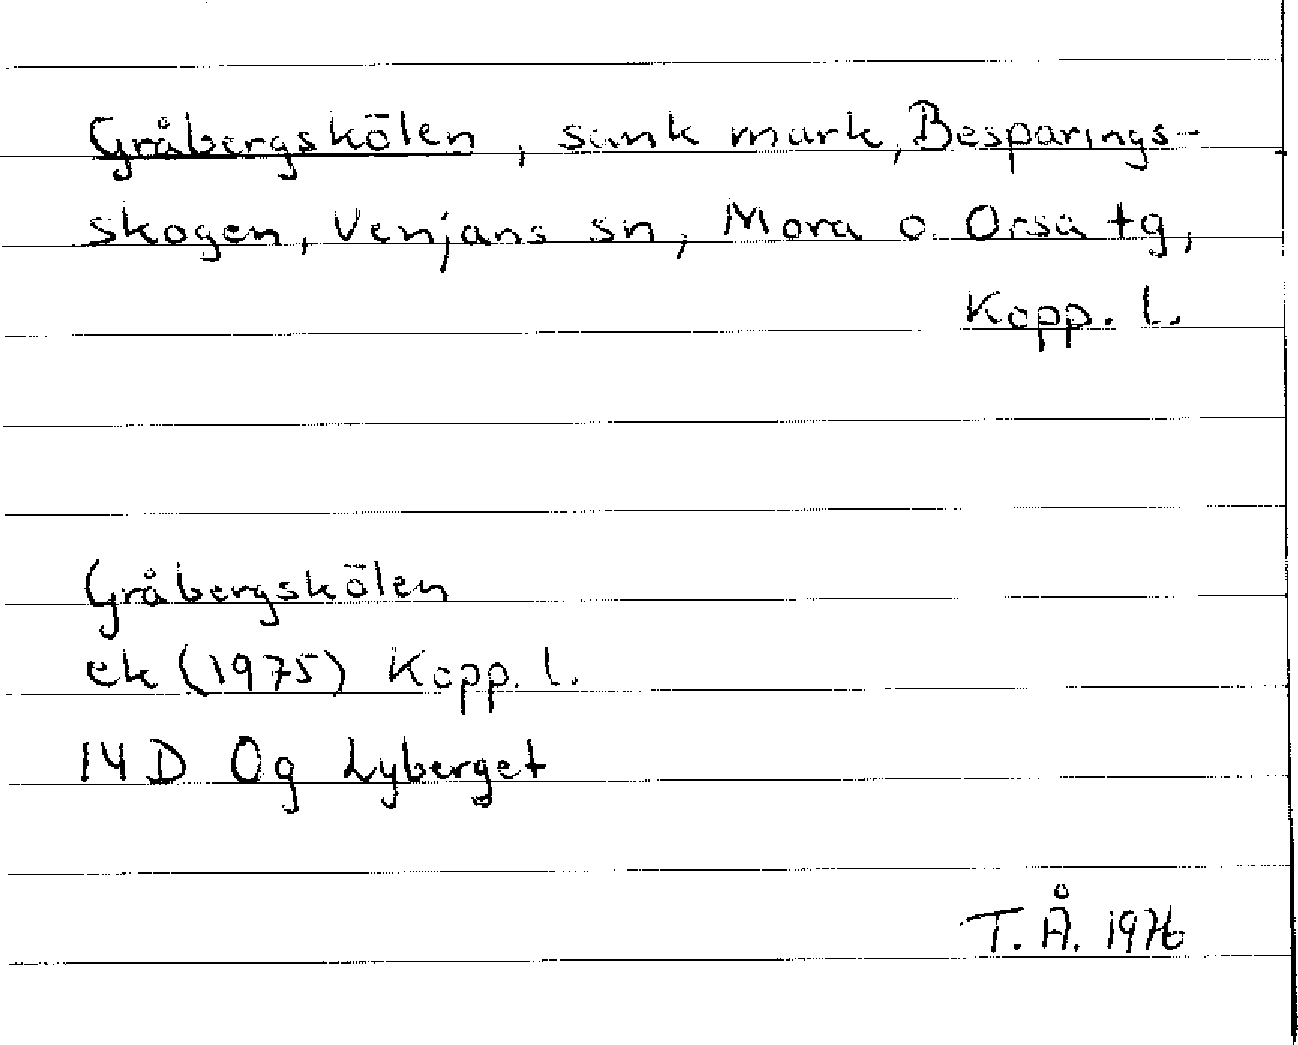 Gråbergskölen, sank mark, Besparings-
skogen, Venjans sn, Mora o. Orsa tg,
Kopp. l.
Gråbergskölen
ek (1975) Kopp. l.
14 D Og Lyberget
T. Å. 1976